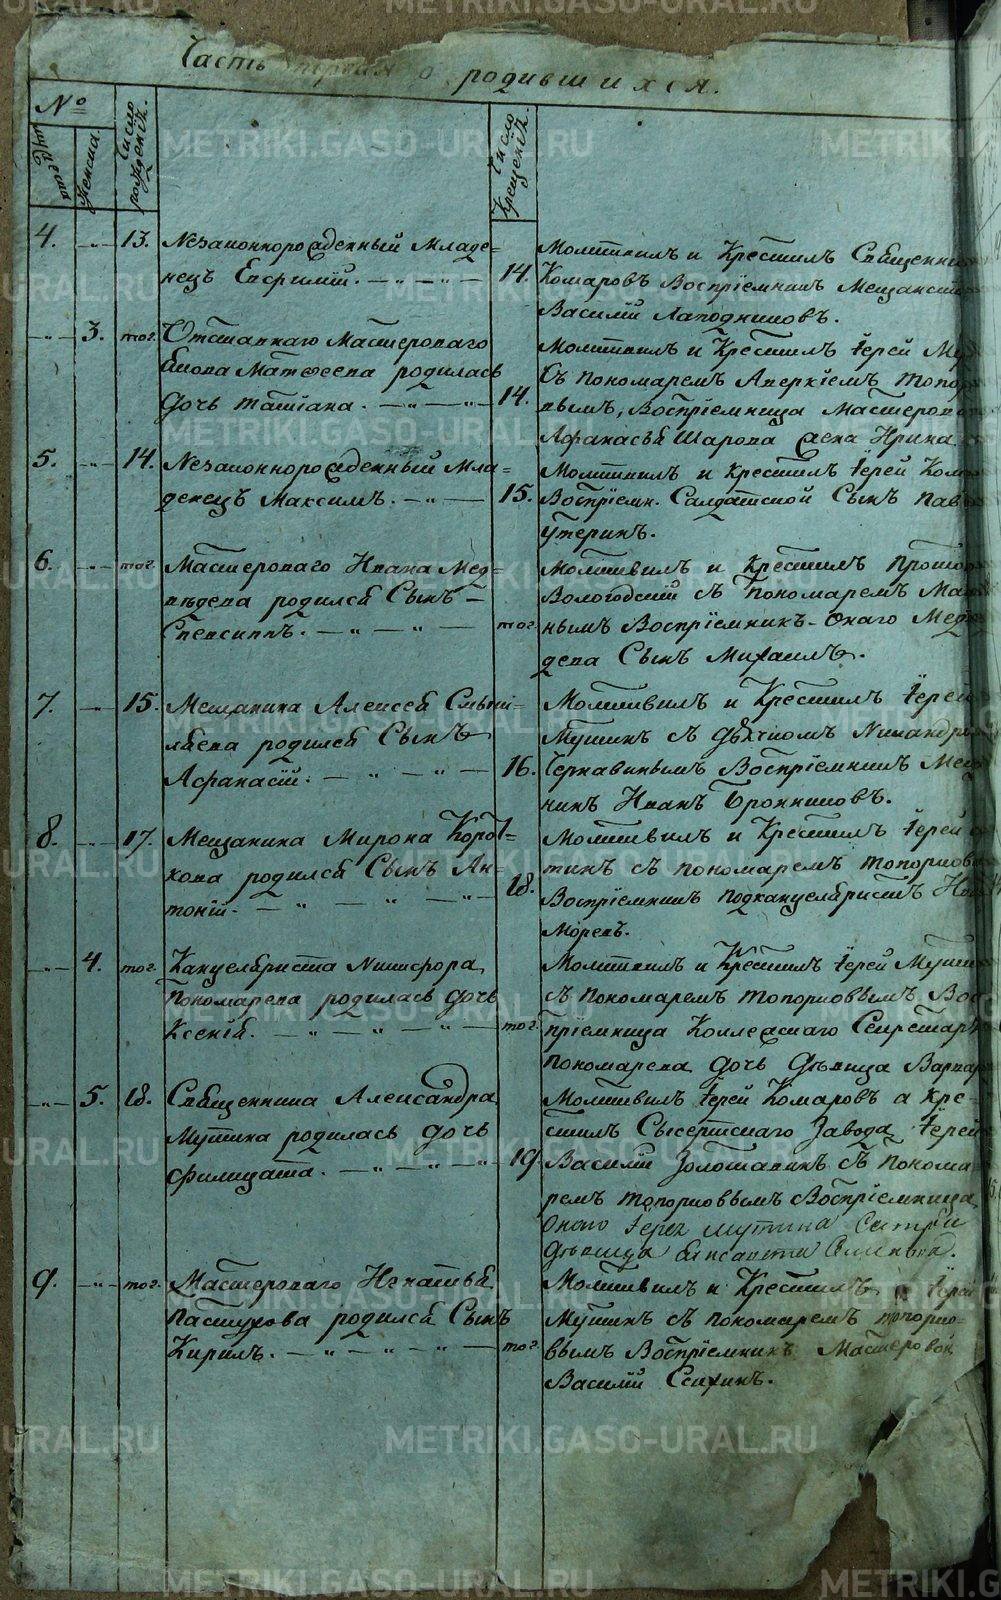 Часть первая о родившихся.
№
Мужеска
Женска.
Число рожденія.
Число Крещенія.
4. 13. Незаконнорожденный Младе-
нецъ Евфимій.
14. Молитвилъ и Крестилъ Священни
Комаровъ Воспріемникъ Мещанско
Василій Лаподниковъ.
3. тог. Отставнаго Мастероваго
Матѳеева родилась
дочь Татіана.
14. Молитвилъ и Крестилъ Іерей Му
Съ пономаремъ Аверкіемъ Топор
вымъ, Воспріемница Мастероваг
Афанасья Шарова жена Ирина
5. 14. Незаконнорожденный Мла-
денецъ Максимъ.
15. Молитвилъ и крестилъ Іерей Ком
Воспріемн. Салдатской Сынъ Пав
Утеринъ.
6. тог. Мастероваго Ивана Мед-
вѣдева родился Сынъ
Спевсиппъ.
тог. Молитвилъ и Крестилъ Протоі
Вологодскій съ Пономаремъ Ма
нымъ Воспріемникъ онаго Медвѣ
дева Сынъ Михаилъ.
7. 15. Мещанина Алексея
родился Сынъ
Афанасій.
16. Молитвилъ и Крестилъ Іерей
Мутинъ съ дьячкомъ Никандро
Чернавинымъ Воспріемникъ Меща
нинъ Иванъ Бронниковъ.
8. 17. Мещанина Мирона Коро-
хова родился Сынъ Ан-
тоній.
18. Молитвилъ и Крестилъ Іерей
тинъ съ пономаремъ топорков
Воспріемникъ подканцеляристъ
Моревъ.
4. тог. Канцеляриста Никифора
Пономарева родилась дочь
Ксенія.
тог. Молитвилъ и Крестилъ Іерей Мути
съ пономаремъ топорковымъ Вос
пріемница Коллежскаго Секретар
пономарева дочь дѣвица Варвар
5. 18. Священника Александра
Мутина родилась дочь
Филицата.
19. Молитвилъ Іерей Комаровъ а кре-
стилъ Сысертскаго Завода Іерей
Василій Золотавинъ съ понома
ремъ топорковымъ Воспріемница
онаго Іерея Мутина Сестра
дѣвица Елисавета
9. тог. Мастероваго Игнатья
Пастухова родился Сынъ
Кирилъ.
тог. Молитвилъ и Крестилъ Іерей
Мутинъ съ пономаремъ топорко-
вымъ Воспріемникъ Мастеровой
Василій
METRIKI.GASO-URAL.RU